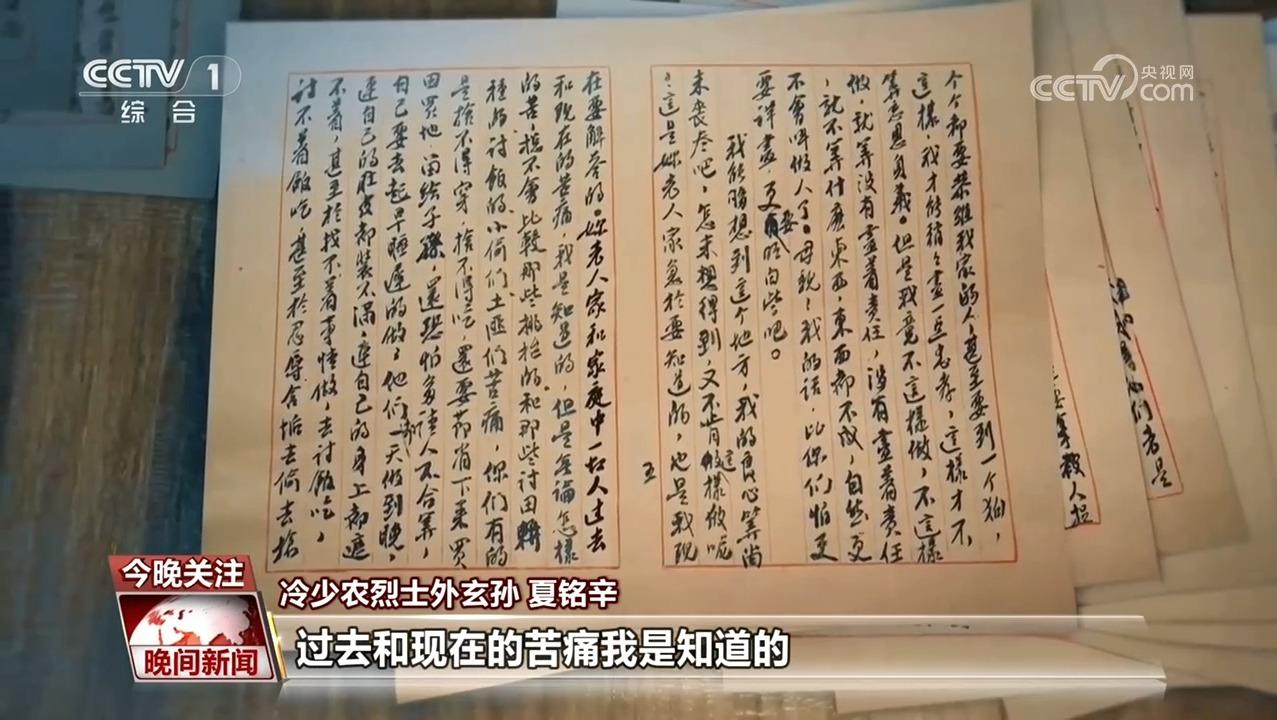 CCTV 1
综合
央视网
CCTV.com
个个都要恭维我家的人，甚至要到一个狗，
这样，我才能稍稍尽一点忠孝，这样才不
算忘恩负义。但是我竟不这样做，不这样
做，就算没有尽着责任，没有尽着责任
，就不算什么东西，东西都不成，自然更
不会叫做人了。母亲，我的话，比你们怕更
要详尽，更要明白些吧。
我能够想到这个地方，我的良心算尚
未丧尽吧，怎未想得到，又不肯这样做呢
：这是你老人家急于要知道的，也是我现
五
在要解答的。你老人家和家庭中一切人过去
和现在的苦痛，我是知道的，但是无论怎样
的苦，总不会比较那些挑抬的和那些讨田耕
种的讨饭的小偷们土匪们苦痛，你们有的
是捨不得穿，捨不得吃，还要节省下来买
田买地，留给子孫，还恐怕多请人不合算，
自己要去起早睡迟的做，他们一天做到晚，
连自己的肚皮都装不满，连自己的身上都遮
不着，甚至於找不着事情做，去讨饭吃，
讨不着饭吃，甚至於忍辱含垢去偷去抢
们者是
教人
今晚关注
晚间新闻
冷少农烈士外玄孙 夏铭辛
过去和现在的苦痛我是知道的